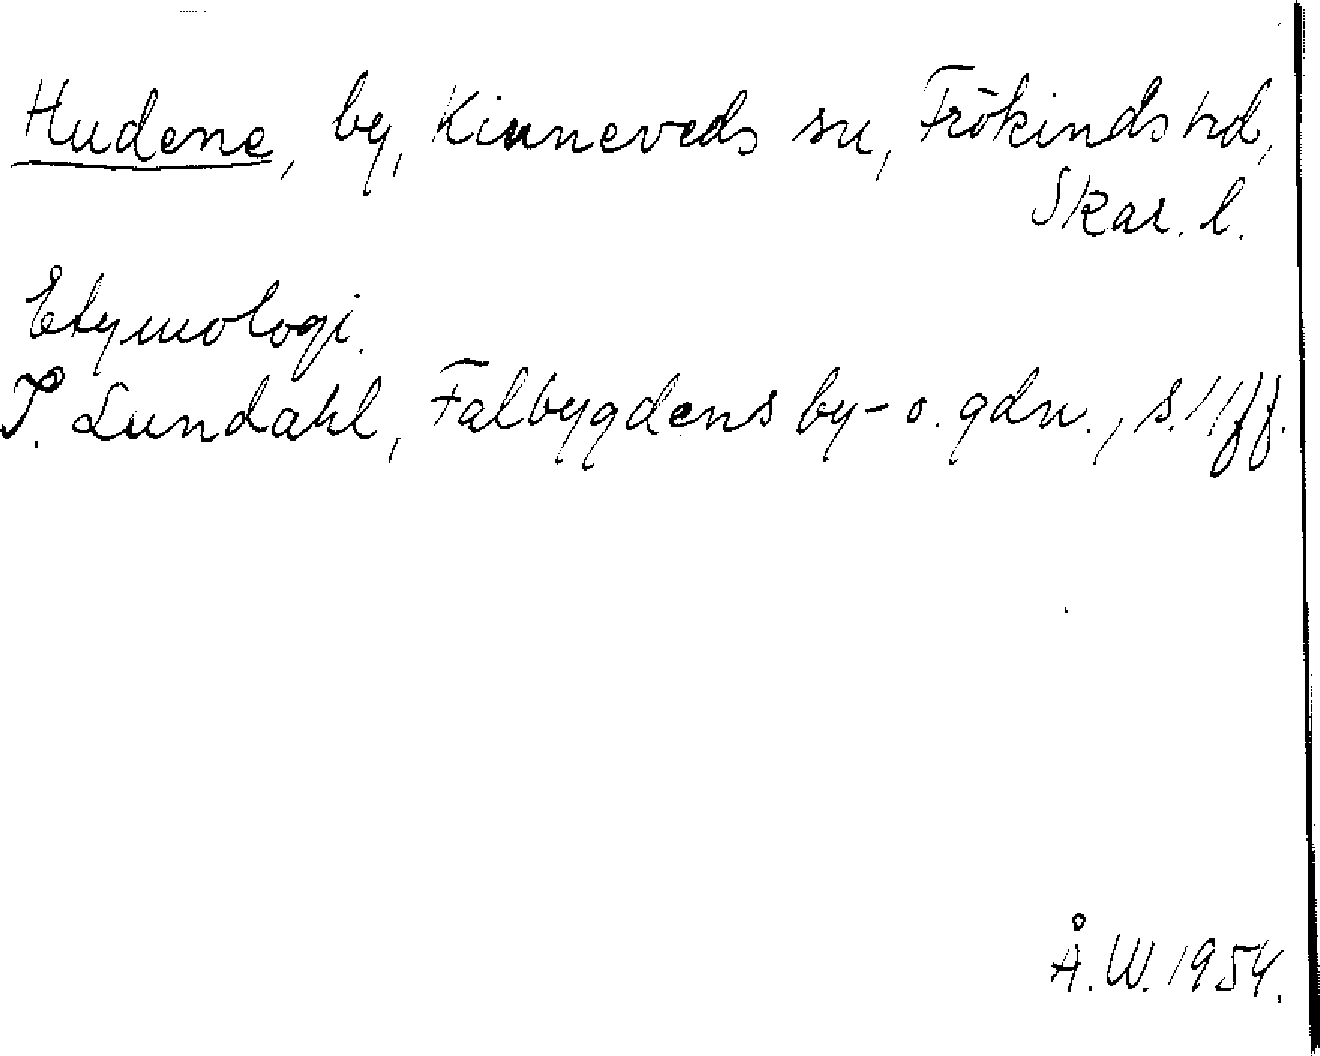 Hudene, by, Kinneveds sn, Frökinds hd,
Skar. l.
Etymologi.
I. Lundahl, Falbygdens by- o. gdn., s. 11 ff.
Å. W. 1954.